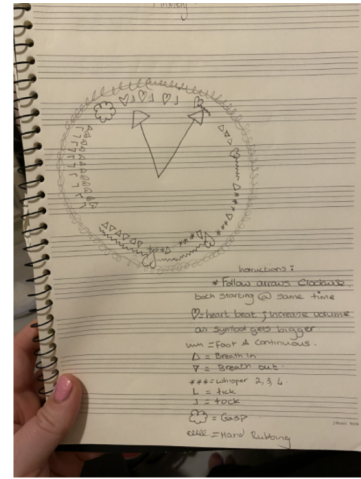 Instructions :
* Follow arrows Clockwise,
both starting @ same time
♡ = heart beat ; increase volume
as Symbol gets bigger
= Foot & Continuous.
△ = Breath in
▽ = Breath out
*** = Whisper 2, 3, 4
L = tick
⅃ = tock
= Gasp
= Hand Rubbing